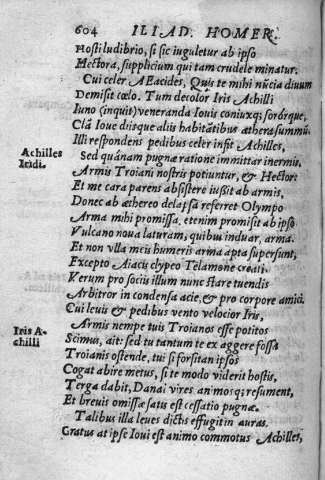 604 ILIAD. HOMER.
Hosti ludibrio, si sic iuguletur ab ipso
Hectora, supplicium qui tam crudele minatur.
Cui celer AEacides, Quis te mihi nũcia diuum
Demisit cœlo. Tum decolor Iris Achilli
Iuno (inquit) veneranda Iouis coniuxq; sororq́ue,
Clã Ioue diisque aliis habitãtibus æthera summũ.
Illi respondens pedibus celer infit Achilles,
Achilles
Iridi.
Sed quánam pugnæ ratione immittar inermis,
Armis Troiani nostris potiuntur, & Hector:
Et me cara parens absistere iußit ab armis,
Donec ab æthereo delapsa referret Olympo
Arma mihi promissa. etenim promisit ab ipso
Vulcano noua laturam, quibus induar, arma.
Et non vlla meis humeris arma apta supersunt,
Excepto Aiacis clypeo Telamone creati.
Verum pro sociis illum nunc stare tuendis
Arbitror in condensa acie, & pro corpore amici.
Cui leuis & pedibus vento velocior Iris,
Iris A-
chilli
Armis nempe tuis Troianos esse potitos
Scimus, ait: sed tu tantum te ex aggere fossa
Troianis ostende, tui si forsitan ipsos
Cogat abire metus, si te modo viderit hostis,
Terga dabit, Danai vires animosq; resument,
Et breuis omissæ satis est cessatio pugnæ.
Talibus illa leues dictis effugit in auras.
Gratus at ipse Ioui est animo commotus Achilles,